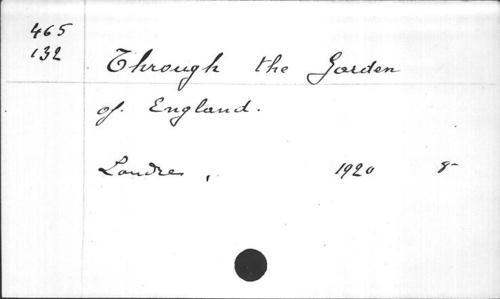 465
132
Through the Garden
of England.
Londres, 1920 8-